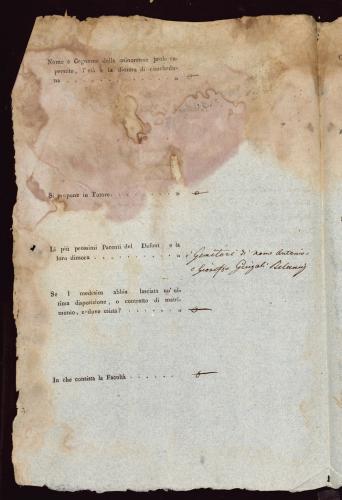 Nome e Cognome della minorenne prole su-
perstite, l'età e la dimora di ciascheda-
na . . . . . . . . . . . . . "
Si propone in Tutore . . . . . . . . . "
Li più prossimi Parenti del Defont e la
loro dimora . . . . . . . . . . . . "
i Genitori di nome Antonio
e
Se l medesimo abbia lasciata un'ul-
tima disposizione, o contratto di matri-
monio, e dove esista? . . . . . . . . "
In che consista la Facoltà . . . . . . . "